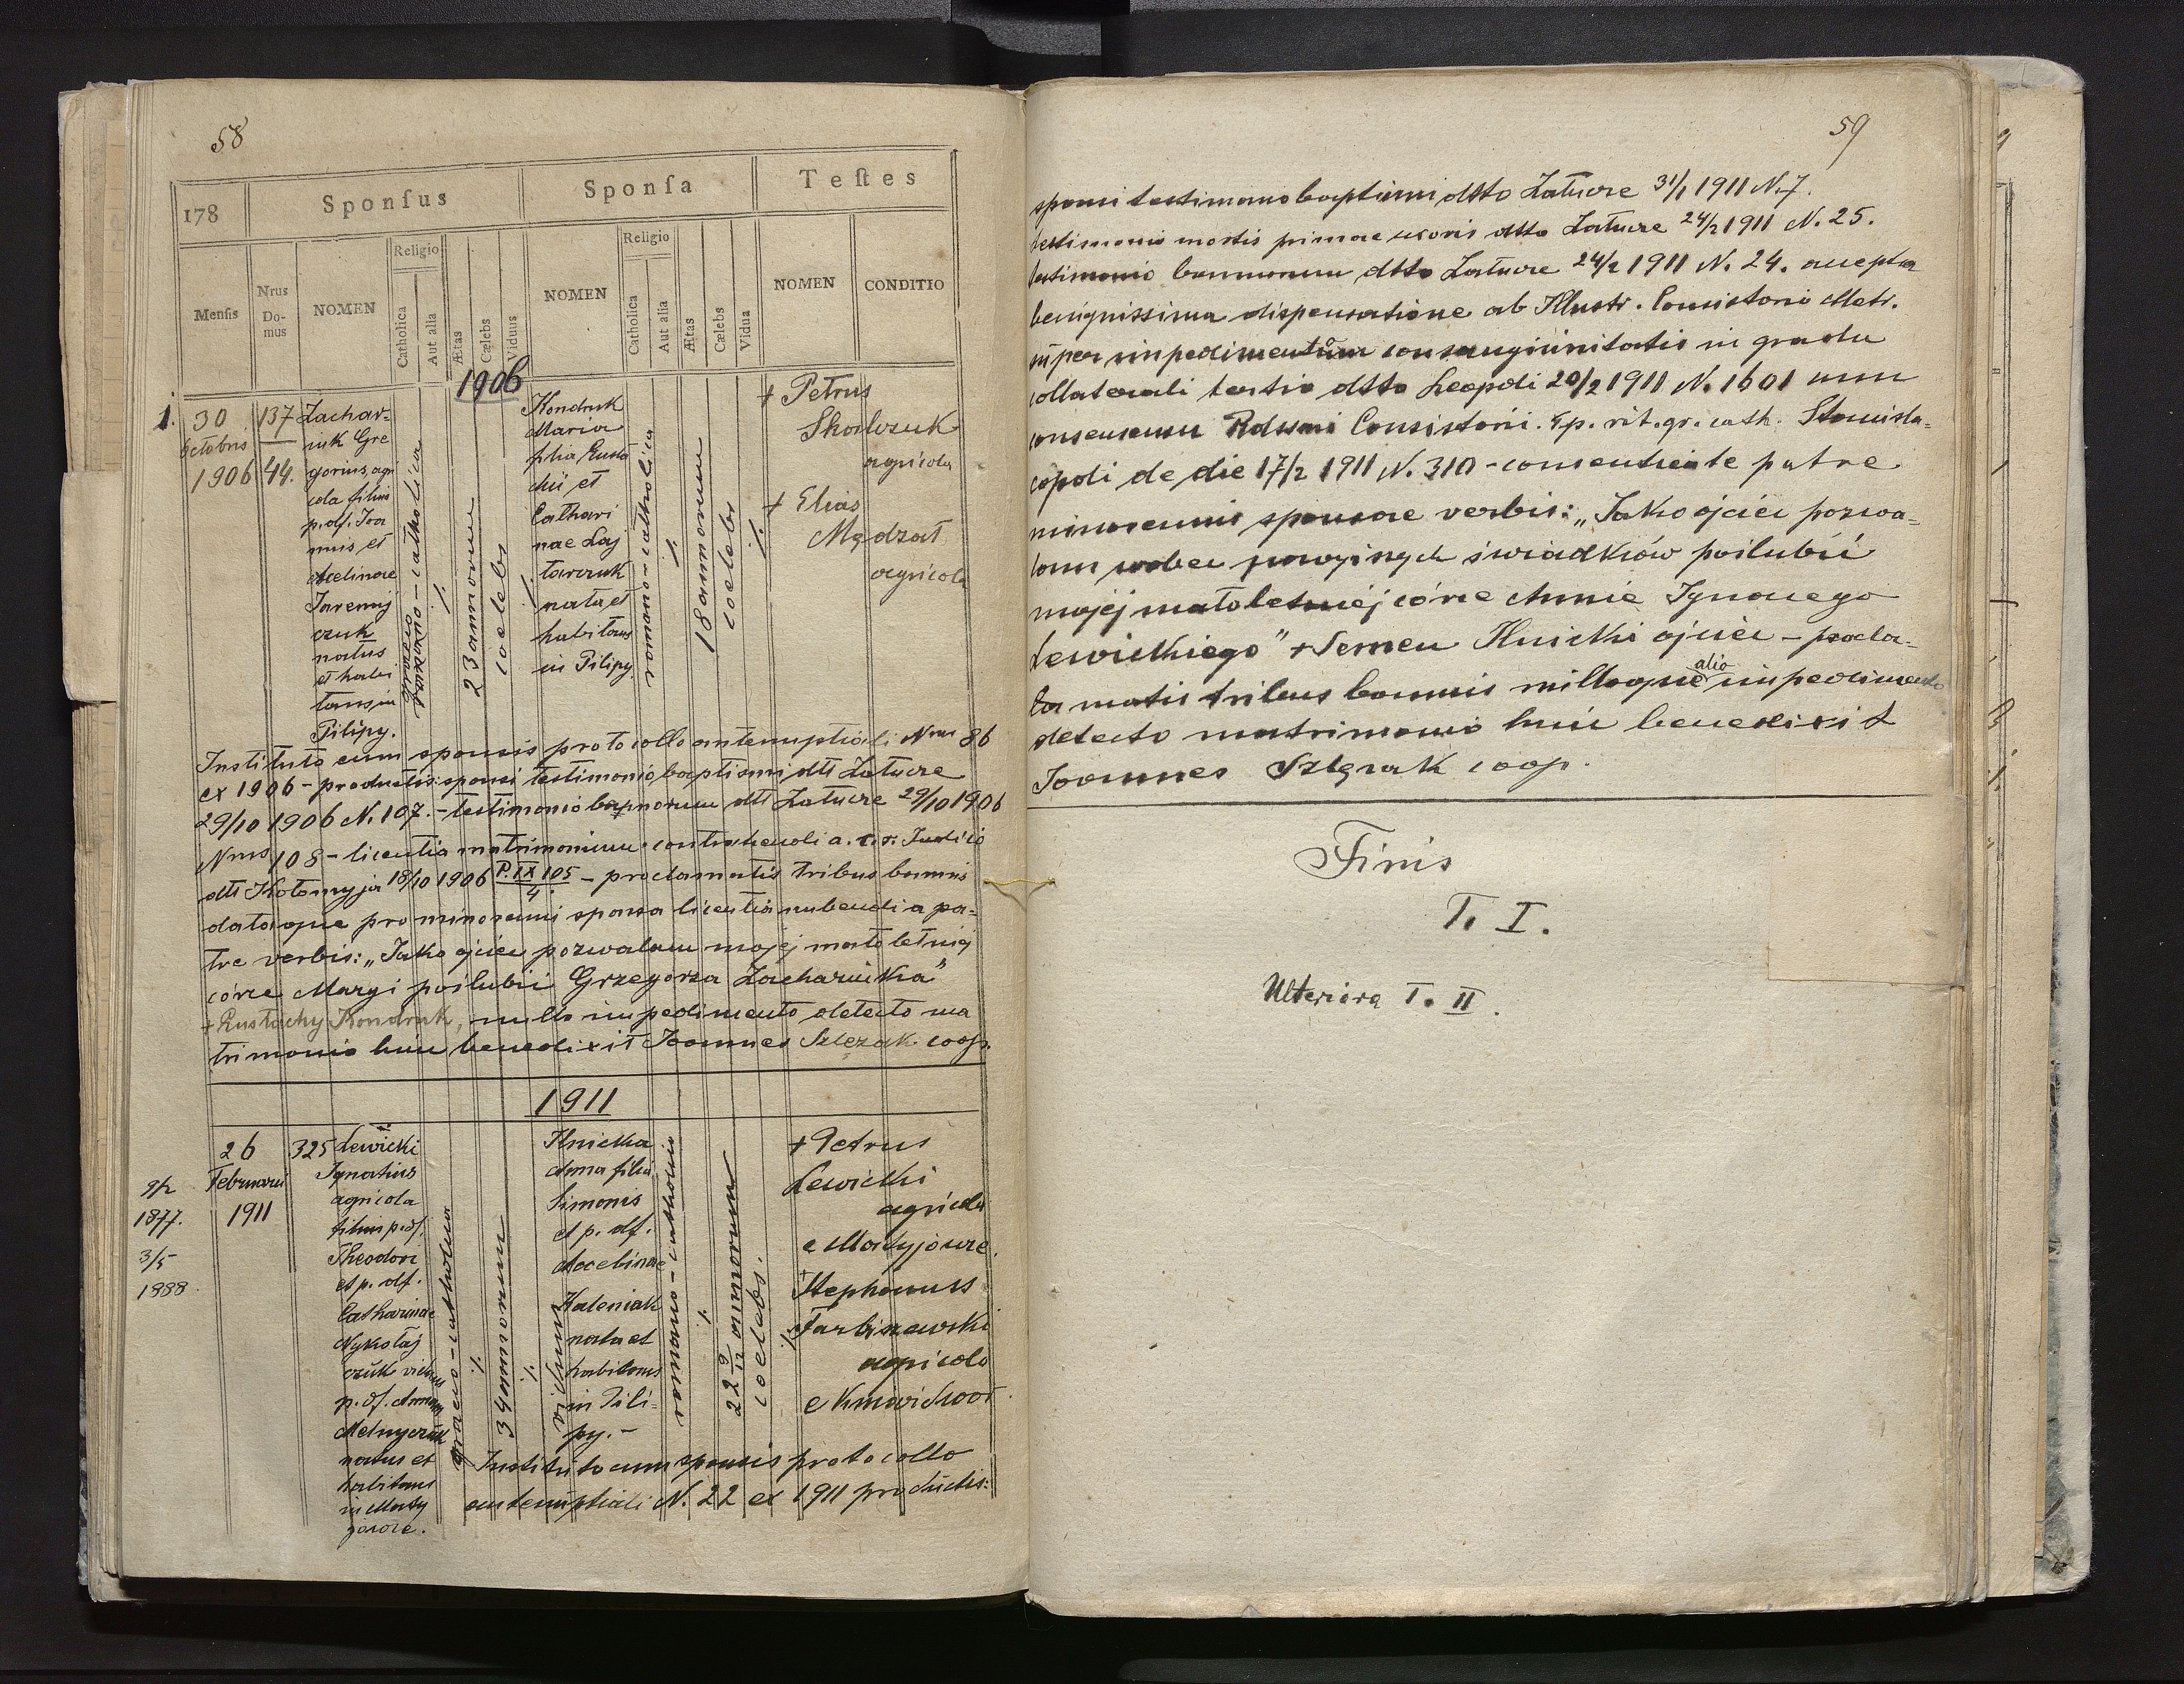 58
178
Sponſus
Sponſa
Teſtes
Menſis
Nrus Do-mus
NOMEN
Religio
Catholica
Aut alia
Ætas
Cælebs
Viduus
NOMEN
Religio
Catholica
Aut alia
Ætas
Cælebs
Vidua
NOMEN
CONDITIO
1906
1.
30
Octobris
1906
137
44.
Zachar-
iuk Gre
gorius, agri
cola filius
p. df. Joa
nnis et
Acelinae
Jaremij
czuk
natus
et habi
tans in
Pilipy.
graeco-catholica
romano-catholica
23 annorum
coelebs
Kondruk
Maria
filia Eusta
chii et
Cathari
nae Łaj
tarczuk
nata et
habitans
in Pilipy
romano-catholica
18 annorum
coelebs
+ Petrus
agricola
+ Elias
agricola
Instituto cum sponsis protocollo antenuptiali Nrus 86
ex 1906 - productis: sponsi testimonio baptismi dtt Zatucze
29/10 1906 N. 107. - testimonio bannorum dtt Zatucze 29/10 1906
Nrus 108 - licentia matrimonium contrahendi a. c. r. Judicio
dtt Kołomyja 18/10 1906 P. IX 105/4. - proclamatis tribus bannis
dataque pro minorenni sponsa licentia nubendi a pa=
tre verbis: „Jako ojciec pozwalam mojej małoletniej
córce Maryi poślubić Grzegorza Zachariuka"
+ Eustachy Kondruk, nullo impedimento detecto ma
trimonio huic benedixit Joannes Szlęzak coop.
1911
9/2
1877.
3/5
1888.
26
Februarii
1911
325
Lewicki
Ignatius
agricola
filius p. df.
Theodori
et p. df.
Catharinae
Nykołaj
czuk viduus
p. df. Annam
Melnyczuk
natus et
habitans
in Maty
jowce.
graeco-catholica
34 annorum
viduus
Ilnicka
Anna filia
Simonis
et p. df.
Acelinae
Kaleniak
nata et
habitans
in Pili=
py. -
romano-catholica
22 9/12 annorum
coelebs.
+ Petrus
Lewicki
agricola
e Matyjowce.
+ Stephanus
Tarbiszewski
agricola
Instituto cum sponsis protocollo
antenuptiali N. 22 ex 1911 productis:
59
sponsi testimonio baptismi dtto Zatucze 31/1 1911 N. 7.
testimonio mortis primae uxoris dtto Zatucze 24/2 1911 N. 25.
testimonio bannorum dtto Zatucze 24/2 1911 N. 24. accepta
benignissima dispensatione ab Illustr. Consistorio Metr.
super impedimentum consanguinitatis in gradu
collaterali tertio dtto Leopoli 20/2 1911 N. 1601 cum
consensum Rdssmi Consistorii. Ep. rit. gr. cath. Stanisla=
opoli de die 17/2 1911 N. 310 - consentiente patre
minorennis sponsae verbis: „Jako ojciec pozwa=
lam wobec świadków poślubić
mojej małoletniej córce Annie Ignacego
Lewickiego" + Semen Ilnicki ojciec - procla=
ta matis tribus bannis nulloque alio impedimento
detecto matrimonio huic benedixit
Joannes Szlęzak coop.
Finis
T. I.
Ulteriora T. II.